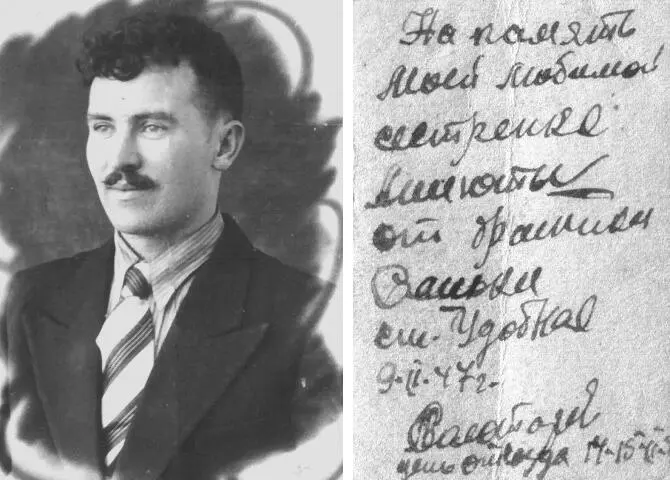 На память
моей любимой
сестренке
Анюты
от братика
Ваньки
ст. Удобная
9-II-47г.
14-15